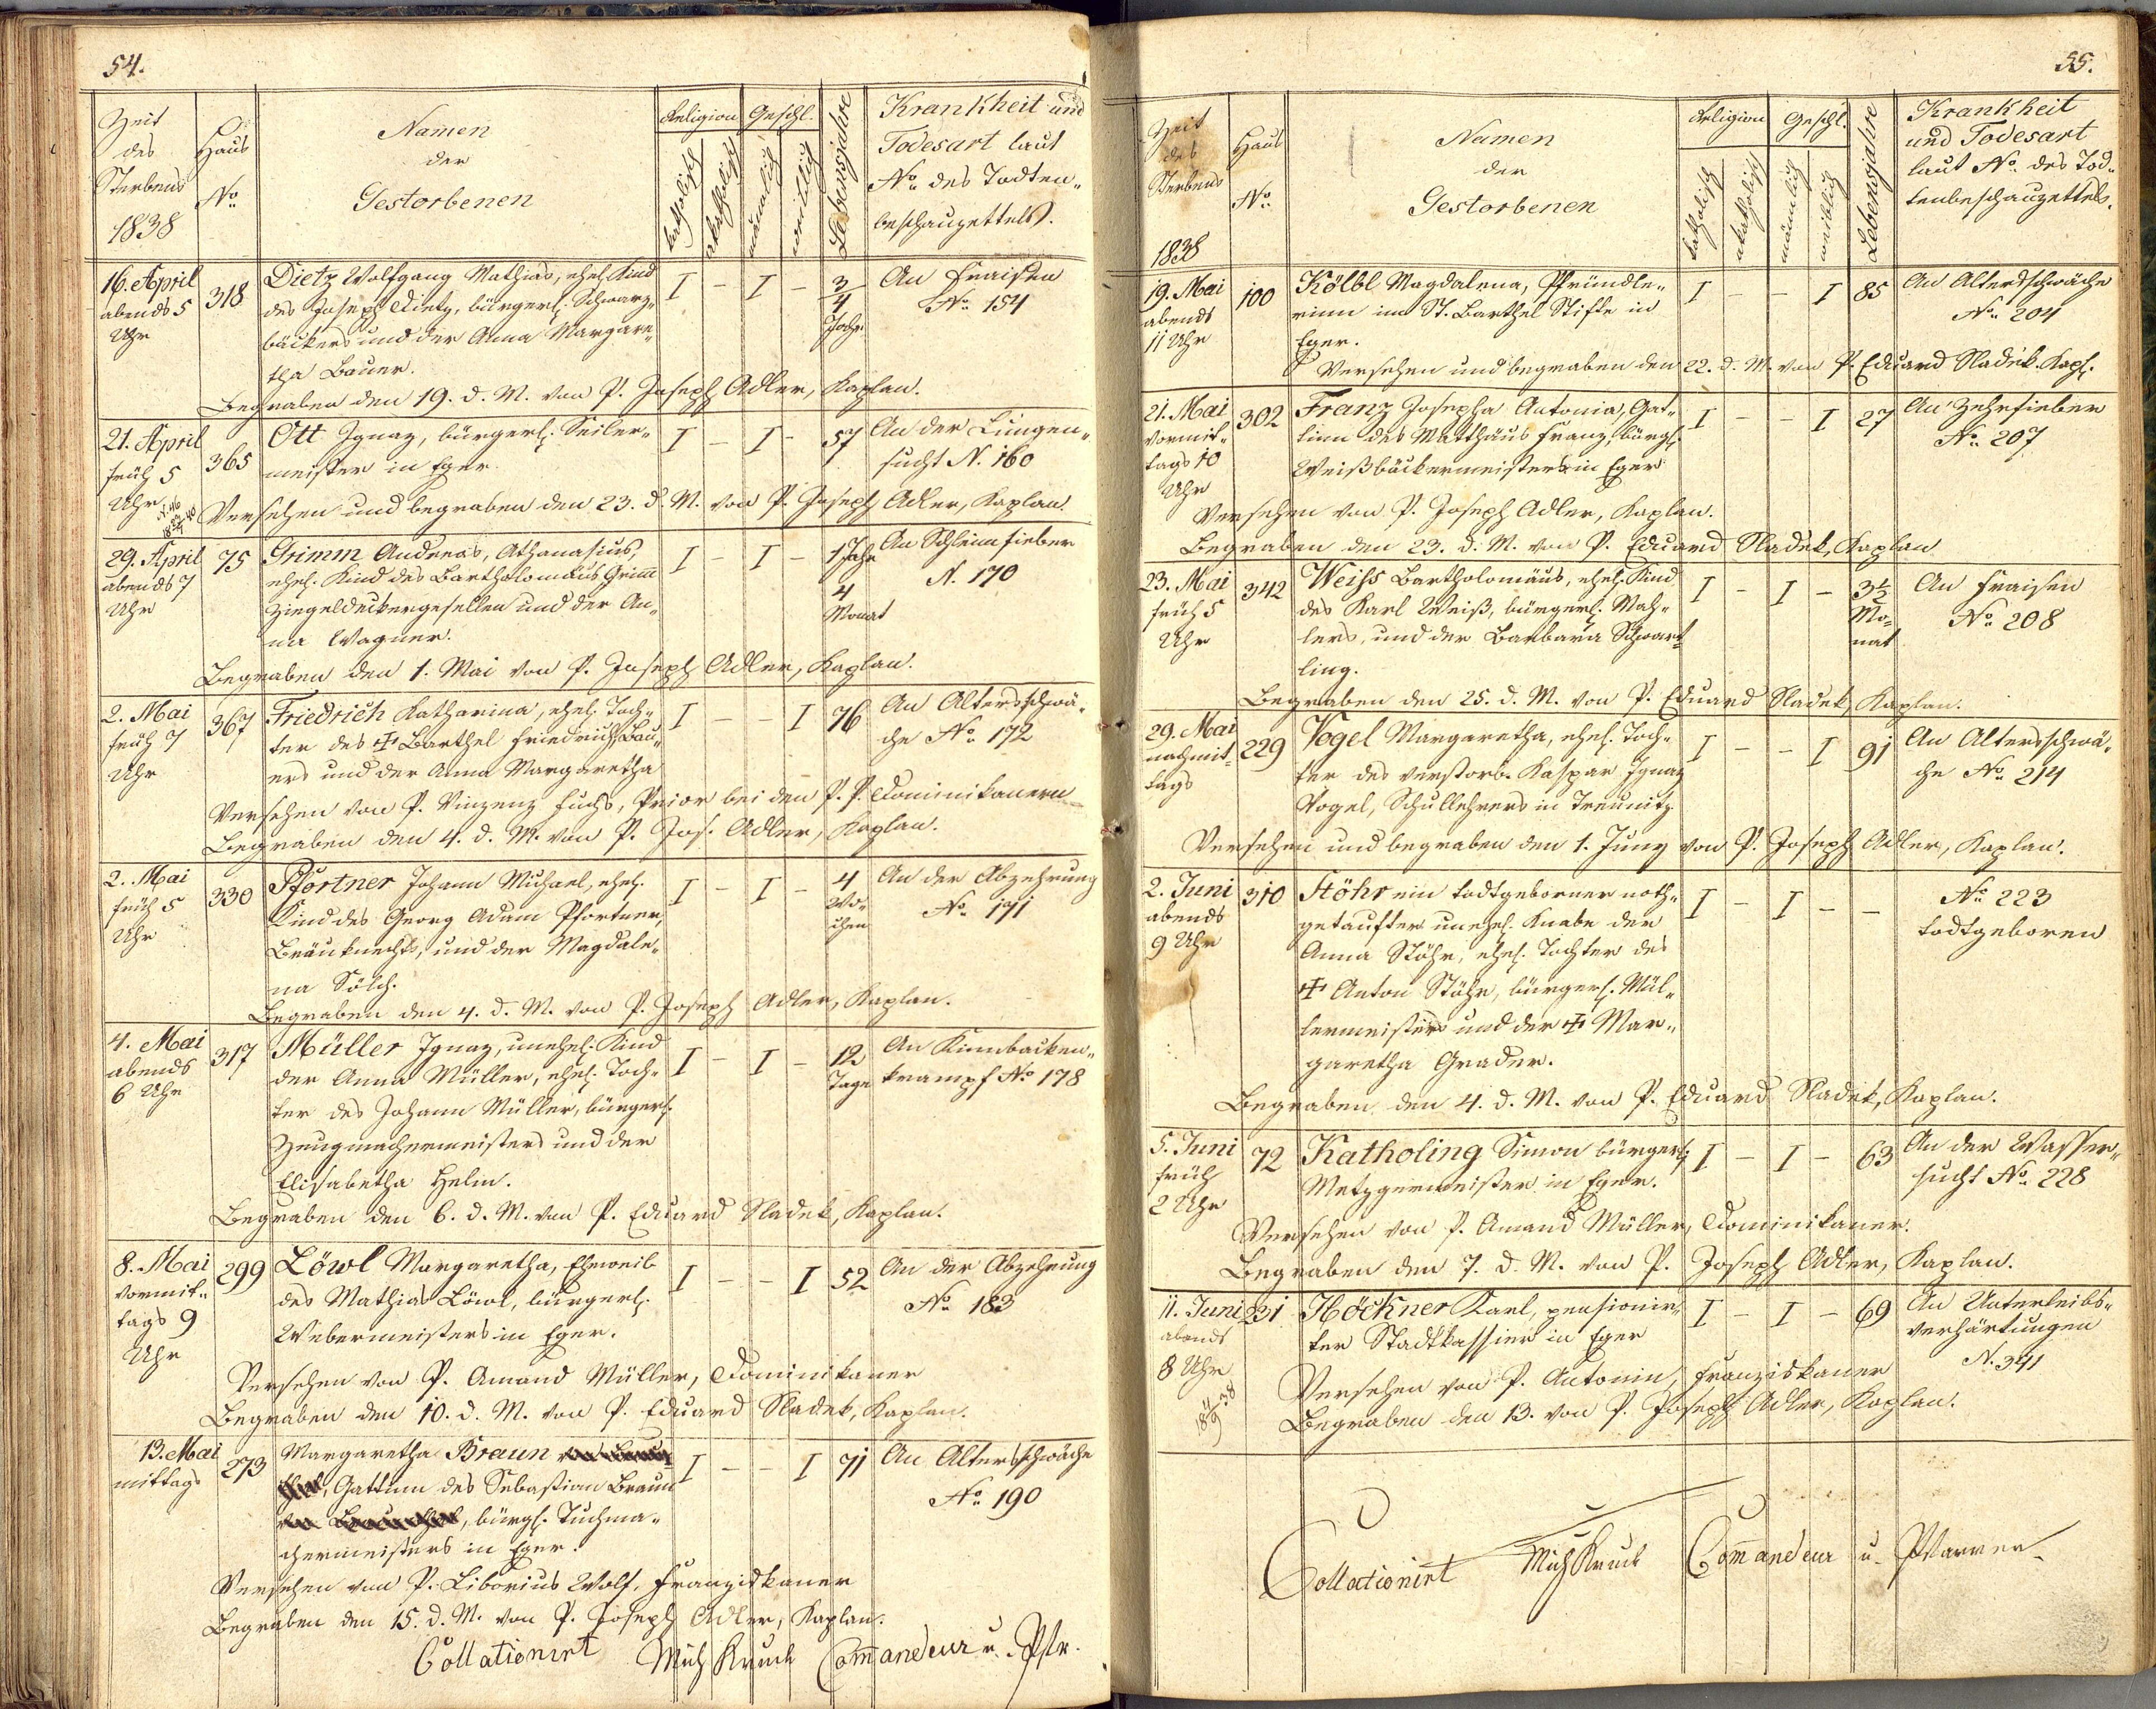 54.
Zeit
des
Sterbens
1838
Haus
No.
Namen
der
Gestorbenen
Religion
katholisch
akatholisch
Geschl.
männlich
weiblich
Lebensjahre
Krankheit und
Todesart laut
No. des Todten„
beschauzettels.
16. April
abends 5
Uhr
318
Dietz Wolfgang Mathias, ehel. Kind
des Joseph Dietz, bürgerl. Schwarz„
bäckers und der Anna Margare„
tha Bauer.
I - I - 3/4
Jahr
An Fraisen
No. 154
Begraben den 19. d. M. von P. Joseph Adler, Kaplan.
21. April
früh 5
Uhr
365
Ott Ignaz, bürgerl. Seiler„
meister in Eger.
I - I - 57
An der Lungen„
sucht N. 160
Versehen und begraben den 23. d. M. von P. Joseph Adler, Kaplan.
29. April
abends 7
Uhr
75
Grimm Andreas, Athanasius,
ehel. Kind des Bartholomäus Grimm
Ziegeldeckergesellen und der An„
na Wagner.
I - I - 1 Jahr
4
Monat
An Schleimfieber
N. 170
Begraben den 1. Mai von P. Joseph Adler, Kaplan.
2. Mai
früh 7
Uhr
367
Friedrich Katharina, ehel. Toch„
ter des ✠ Barthel Friedrich Bau„
ers und der Anna Margaretha
I - - I 76
An Altersschwä„
che No. 172
Versehen von P. Vinzenz Fuchs, Prior bei den P. P. Dominikanern
Begraben den 4. d. M. von P. Jos. Adler, Kaplan.
2. Mai
früh 5
Uhr
330
Pförtner Johann Michael, ehel.
Kind des Georg Adam Pförtner,
Bräuknechts, und der Magdale„
na Sölch.
I - I - 4
Wo„
chen
An der Abzehrung
No. 171
Begraben den 4. d. M. von P. Joseph Adler, Kaplan.
4. Mai
abends
6 Uhr
317
Müller Ignaz, unehel. Kind
der Anna Müller, ehel. Toch„
ter des Johann Müller, bürgerl.
Zeugmachermeisters und der
Elisabetha Helm.
I - I - 12
Tage
An Kinnbacken„
krampf No. 178
Begraben den 6. d. M. von P. Eduard Sladek, Kaplan.
8. Mai
vormit„
tags 9
Uhr
299
Löwl Margaretha, Eheweib
des Mathias Löwl, bürgerl.
Webermeisters in Eger.
I - - I 52
An der Abzehrung
No. 183
Versehen von P. Amand Müller, Dominikaner
Begraben den 10. d. M. von P. Eduard Sladek, Kaplan.
13. Mai
mittags
273
Margaretha Braun
, Gattinn des Sebastian Braun
, bürgl. Tuchma„
chermeisters in Eger.
I - - I 71
An Altersschwäche
No. 190
Versehen von P. Liborius Wolf, Franziskaner
Begraben den 15. d. M. von P. Joseph Adler, Kaplan.
Collationirt Mich Kruck Commandeur u. Pfr.
55.
Zeit
des
Sterbens
1838
Haus
No.
Namen
der
Gestorbenen
Religion
katholisch
akatholisch
Geschl.
männlich
weiblich
Lebensjahre
Krankheit
und Todesart
laut No. des Tod„
tenbeschauzettels.
19. Mai
abends
11 Uhr
100
Kölbl Magdalena, Pfründle„
rinn im St. Barthel Stifte in
Eger.
I - - I 85
An Altersschwäche
No. 204
Versehen und begraben den 22. d. M. von P. Eduard Sladek Kapl.
21. Mai
vormit„
tags 10
Uhr
302
Franz Josepha Antonia, Gat„
tinn des Matthäus Franz, bürgl.
Weißbäckermeisters in Eger
I - - I 27
An Zehrfieber
No. 207
Versehen von P. Joseph Adler, Kaplan.
Begraben den 23. d. M. von P. Eduard Sladek, Kaplan
23. Mai
früh 5
Uhr
342
Weiss Bartholomäus, ehel. Kind
des Karl Weiß, bürgerl. Mah„
lers, und der Barbara Schwart„
ling.
I - I - 3½
Mo„
nat
An Fraisen
No. 208
Begraben den 25. d. M. von P. Eduard Sladek, Kaplan.
29. Mai
nachmit„
tags
229
Vogel Margaretha, ehel. Toch„
ter des verstorb. Kaspar Ignaz
Vogel, Schullehrers in Treunitz
I - - I 91
An Altersschwä„
che No. 214
Versehen und begraben den 1. Juny von P. Joseph Adler, Kaplan.
2. Juni
abends
9 Uhr
310
Stöhr ein todtgeborner noth„
getaufter unehel. Knabe der
Anna Stöhr, ehel. Tochter des
✠ Anton Stöhr, bürgerl. Mül„
lermeisters und der ✠ Mar„
garetha Grader.
I - I - -
No. 223
todtgeboren
Begraben den 4. d. M. von P. Eduard Sladek, Kaplan.
5. Juni
früh
2 Uhr
72
Katholing Simon bürgerl.
Metzgermeister in Eger.
I - I - 63
An der Wasser„
sucht No. 228
Versehen von P. Amand Müller, Dominikaner.
Begraben den 7. d. M. von P. Joseph Adler, Kaplan.
11. Juni
abends
8 Uhr
231
Höckner Karl, pensionir„
ter Stadtkassier in Eger
I - I - 69
An Unterleibs„
verhärtungen
N. 341
Versehen von P. Antonin, Franziskaner
Begraben den 13. von P. Joseph Adler, Kaplan.
Collationirt Mich Kruck Commandeur u. Pfarrer